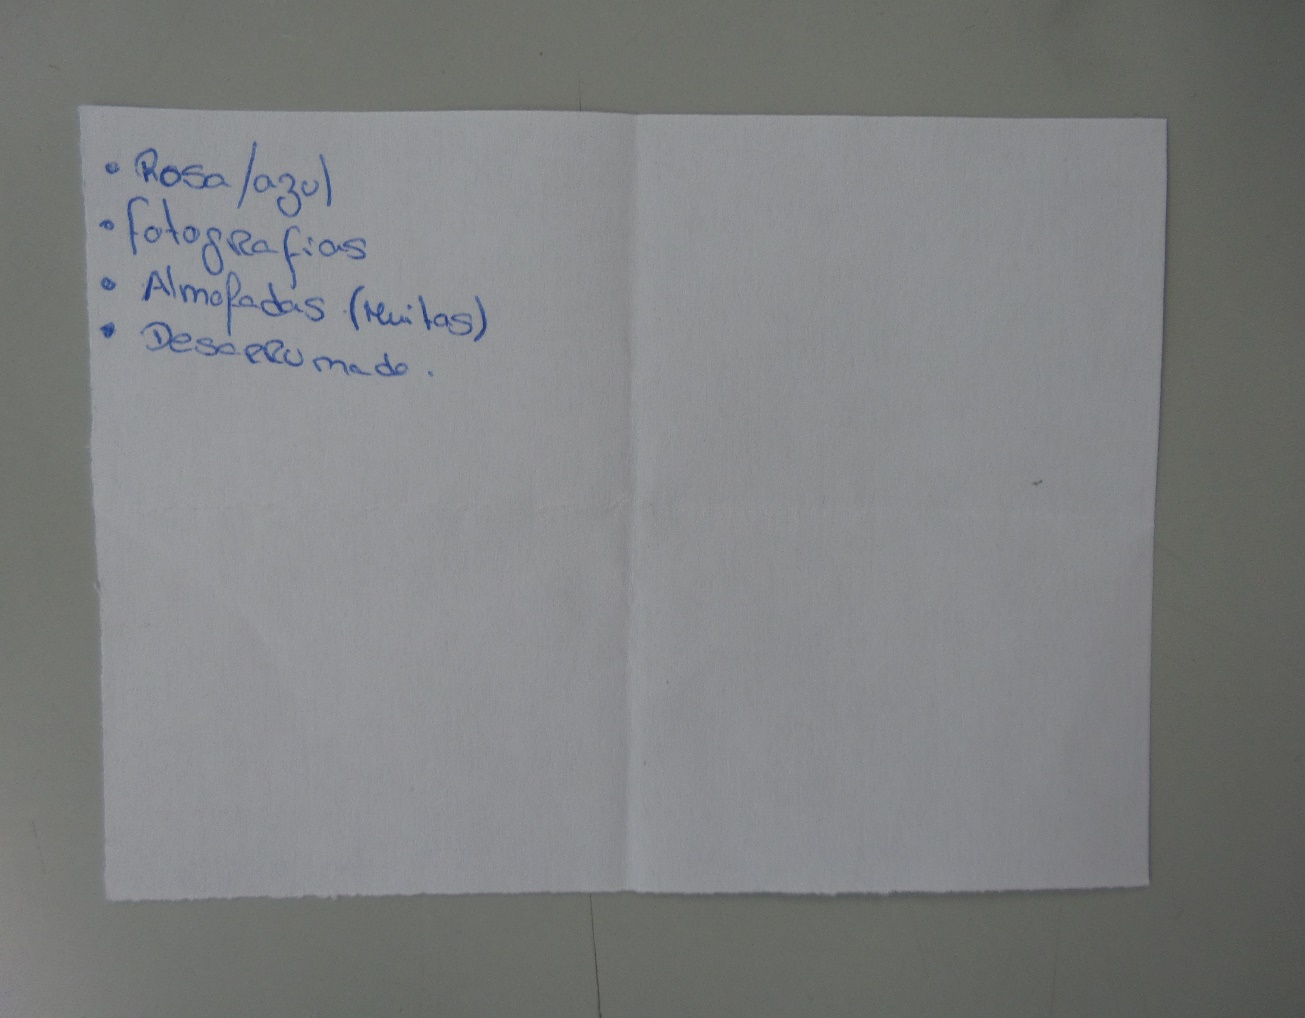 • Rosa/azul
• fotografias
• Almofadas (Muitas)
• Desarrumado.